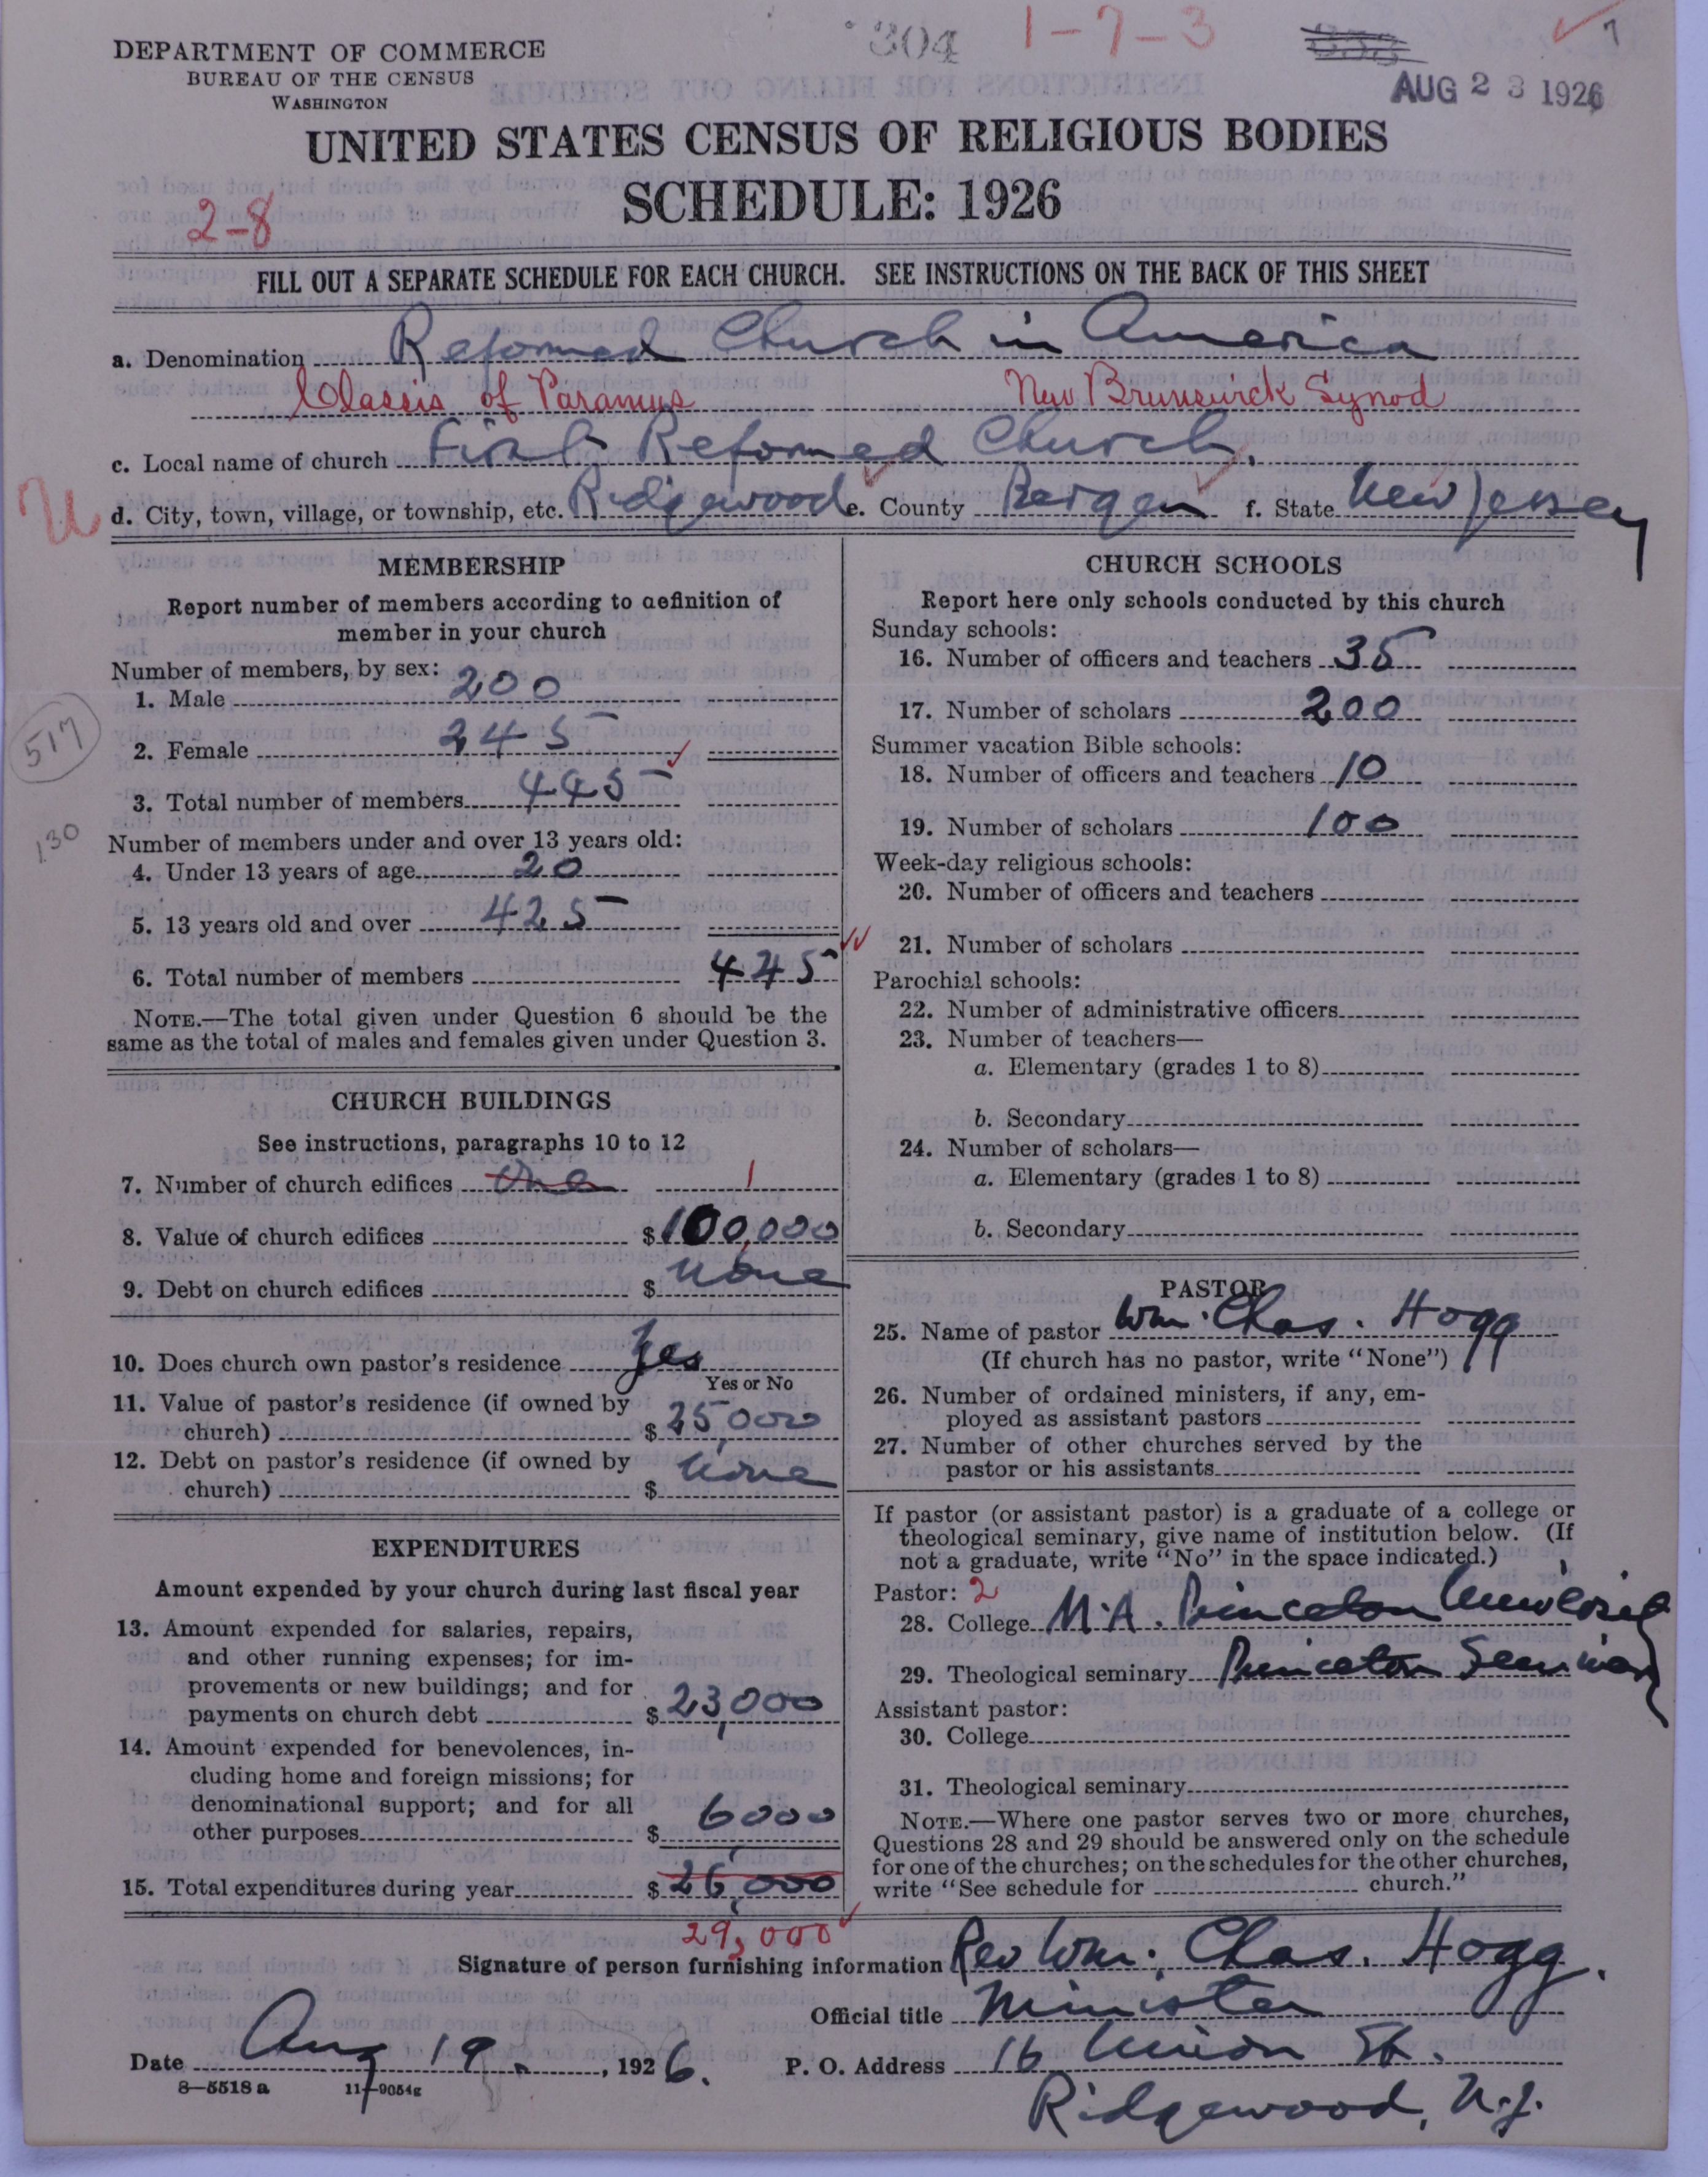 304 1-7-3 7
DEPARTMENT OF COMMERCE
BUREAU OF THE CENSUS
WASHINGTON
AUG 23 1926
UNITED STATES CENSUS OF RELIGIOUS BODIES
SCHEDULE: 1926
2-8
FILL OUT A SEPARATE SCHEDULE FOR EACH CHURCH. SEE INSTRUCTIONS ON THE BACK OF THIS SHEET
a. Denomination Reformed Church in America
Classis of Paramus New Brunswick Synod
c. Local name of church First Reformed Church.
d. City, town, village, or township, etc. Ridgewood e. County Bergen f. State New Jersey
U
MEMBERSHIP
Report number of members according to definition of
member in your church
Number of members, by sex:
1. Male 200
517
2. Female 245
3. Total number of members 445
130
Number of members under and over 13 years old:
4. Under 13 years of age 20
5. 13 years old and over 425
6. Total number of members 445
NOTE.—The total given under Question 6 should be the
same as the total of males and females given under Question 3.
CHURCH BUILDINGS
See instructions, paragraphs 10 to 12
7. Number of church edifices One 1
8. Value of church edifices $100,000
9. Debt on church edifices $ None
10. Does church own pastor's residence Yes
Yes or No
11. Value of pastor's residence (if owned by
church) $ 25,000
12. Debt on pastor's residence (if owned by
church) $ None
EXPENDITURES
Amount expended by your church during last fiscal year
13. Amount expended for salaries, repairs,
and other running expenses; for im-
provements or new buildings; and for
payments on church debt $ 23,000
14. Amount expended for benevolences, in-
cluding home and foreign missions; for
denominational support; and for all
other purposes $ 6000
15. Total expenditures during year $ 26,000
29,000
CHURCH SCHOOLS
Report here only schools conducted by this church
Sunday schools:
16. Number of officers and teachers 35
17. Number of scholars 200
Summer vacation Bible schools:
18. Number of officers and teachers 10
19. Number of scholars 100
Week-day religious schools:
20. Number of officers and teachers
21. Number of scholars
Parochial schools:
22. Number of administrative officers
23. Number of teachers—
a. Elementary (grades 1 to 8)
b. Secondary
24. Number of scholars—
a. Elementary (grades 1 to 8)
b. Secondary
PASTOR
25. Name of pastor Wm. Chas. Hogg
(If church has no pastor, write "None")
26. Number of ordained ministers, if any, em-
ployed as assistant pastors
27. Number of other churches served by the
pastor or his assistants
If pastor (or assistant pastor) is a graduate of a college or
theological seminary, give name of institution below. (If
not a graduate, write "No" in the space indicated.)
Pastor: 2
28. College M.A. Princeton University
29. Theological seminary Princeton Seminary
Assistant pastor:
30. College
31. Theological seminary
NOTE.—Where one pastor serves two or more churches,
Questions 28 and 29 should be answered only on the schedule
for one of the churches; on the schedules for the other churches,
write "See schedule for church."
Signature of person furnishing information Rev Wm. Chas. Hogg.
Official title Minister
Date Aug 19., 1926. P. O. Address 16 Union St.
8—5518 a 11—9054g
Ridgewood, N.J.